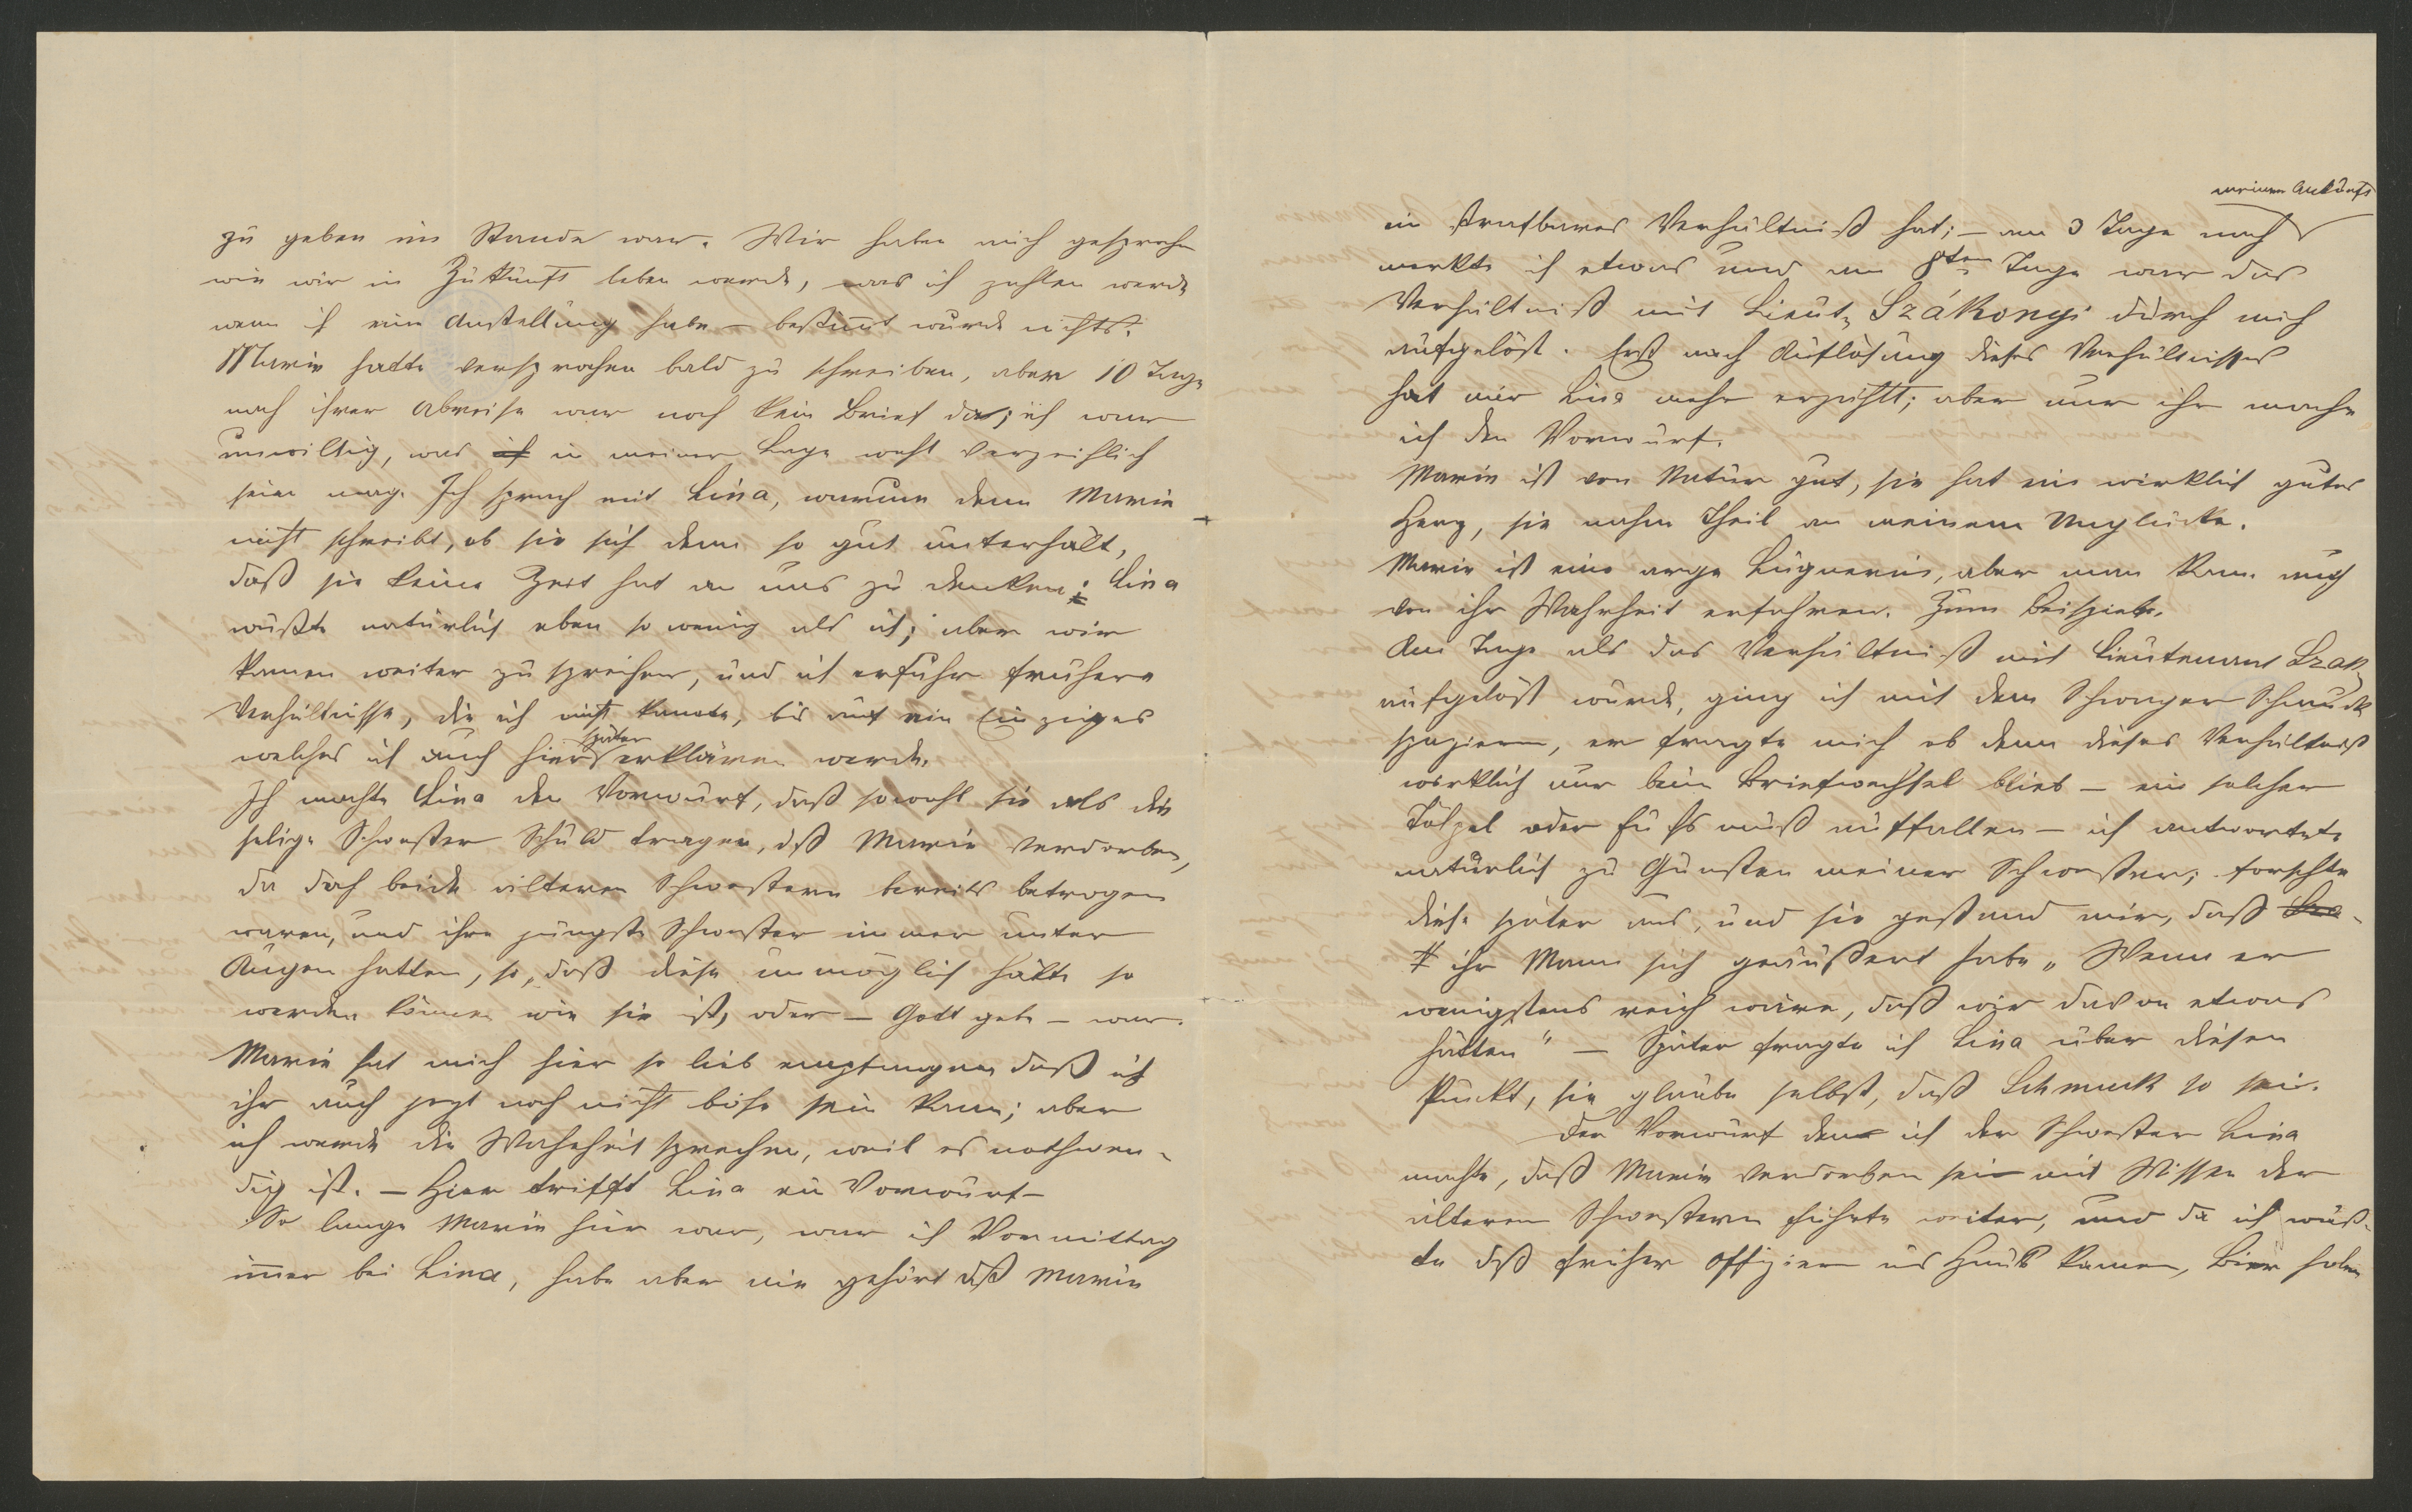 zu geben im Stande war. Wir haben auch gesprochen
wie wir in Zukunft leben werde, was ich zahlen werde
wenn ich eine Anstellung habe – bestimmt wurde nichts.
Marie hatte versprochen bald zu schreiben, aber 10 Tage
nach ihrer Abreise war noch kein Brief da; ich war
unwillig, was ich in meiner Lage wohl verzeihlich
sein mag. Ich sprach mit Lina, warum denn Marie
nicht schreibt, ob sie sich denn so gut unterhält,
daß sie keine Zeit hat an uns zu denken; Lina
wußte natürlich eben so wenig als ich; aber wir
kamen weiter zu sprechen, und ich erfuhr frühere
Verhältnisse, die ich nicht kannte, bis auf ein Einziges
welches ich auch hier später erklären werde.
Ich machte Lina den Vorwurf, daß sowohl sie als die
selige Schwester Schuld tragen, dß Marie verdorben,
da doch beide älteren Schwestern bereits betrogen
waren, und ihre jüngste Schwester immer unter
Augen hatten, so, daß diese unmöglich hätte so
werden können wie sie ist, oder – Gott gebe – war.
Marie hat mich hier so lieb empfangen daß ich
ihr auch jezt noch nicht böse sein kann; aber
ich werde die Wahrheit sprechen, weil es nothwen-
dig ist. – Hier trifft Lina ein Vorwurf –
So lange Marie hier war, war ich Vormittag
immer bei Lina, habe aber nie gehört dß Marie
meiner Ankunft
ein strafbares Verhältniß hat; – am 3 Tage nach
merkte ich etwas und am 8ten Tage war das
Verhältniß mit Lieut. Szákonyi durch mich
aufgelöst. Erst nach Auflösung dieses Verhältnisses
hat mir Lina mehr erzählt; aber nur ihr mache
ich den Vorwurf.
Marie ist von Natur gut, sie hat ein wirklich gutes
Herz, sie nahm Theil an meinem Unglücke.
Marie ist eine arge Lügnerin, aber man kann auch
von ihr Wahrheit erfahren. Zum Beispiele.
Am Tage als das Verhältniß mit Lieutenant Szak
aufgelöst wurde, ging ich mit dem Schwager Schmuck
spazieren, er fragte mich ob denn dieses Verhältniß
wirklich nur beim Briefwechsel blieb – ein solcher
Tölpel oder Fuchs muß auffallen – ich antwortete
natürlich zu Gunsten meiner Schwester; forschte
diese später aus, und sie gestand mir, daß
ihr Mann sich geäußert habe „Wenn er
wenigstens reich wäre, daß wir davon etwas
hätten" – Später fragte ich Lina über diesen
Punkt, sie glaube selbst, daß Schmuck so sei.
Der Vorwurf den ich der Schwester Lina
machte, daß Marie verdorben sei mit Wissen der
älteren Schwestern führte weiter, und da ich wuß-
te dß früher Offiziere ins Haus kamen, Bier holen